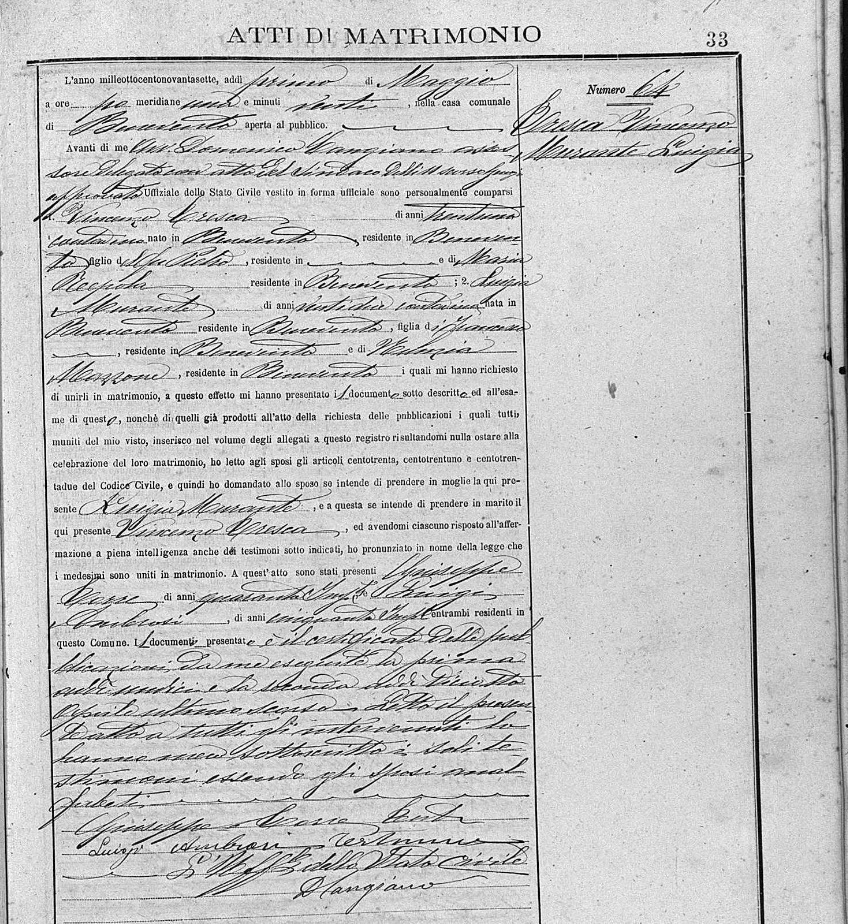 ATTI DI MATRIMONIO
33
Numero 64
Cresca Vincenzo
Murante Luigia
L'anno milleottocentonovantasette, addì primo di Maggio
a ore po meridiane una e minuti venti, nella casa comunale
di Benevento aperta al pubblico.
Avanti di me Cav. Domenico Mangiano asses
sore delegato con atto del Sindaco
approvato Uffiziale dello Stato Civile vestito in forma uffiziale sono personalmente comparsi
1. Vincenzo Cresca di anni trentuno
contadino nato in Benevento residente in Beneven
to figlio di fu Pietro, residente in e di Maria
residente in Benevento; 2. Luigia
Murante di anni ventidue contadina nata in
Benevento residente in Benevento, figlia di Francesco
, residente in Benevento e di
Mazzone, residente in Benevento i quali mi hanno richiesto
di unirli in matrimonio, a questo effetto mi hanno presentato il documento sotto descritto ed all'esa-
me di questo, nonchè di quelli già prodotti all'atto della richiesta delle pubblicazioni i quali tutti,
muniti del mio visto, inserisco nel volume degli allegati a questo registro risultandomi nulla ostare alla
celebrazione del loro matrimonio, ho letto agli sposi gli articoli centotrenta, centotrentuno e centotren-
tadue del Codice Civile, e quindi ho domandato allo sposo se intende di prendere in moglie la qui pre-
sente Luigia Murante, e a questa se intende di prendere in marito il
qui presente Vincenzo Cresca, ed avendomi ciascuno risposto all'affer-
mazione a piena intelligenza anche dei testimoni sotto indicati, ho pronunziato in nome della legge che
i medesimi sono uniti in matrimonio. A quest'atto sono stati presenti Giuseppe
di anni quaranta Imp. Luigi
Ambrosi, di anni cinquanta Imp. entrambi residenti in
questo Comune. Il documento presentato è il certificato delle pub
blicazioni da me eseguite la prima
addì undici e la seconda addì diciotto
Aprile ultimo scorso. Letto il presen
te atto a tutti gli intervenuti lo
hanno meco sottoscritto i soli te
stimoni essendo gli sposi anal
fabeti.
Giuseppe
Luigi Ambrosi Testimone
L'Uff. dello Stato Civile
D Mangiano